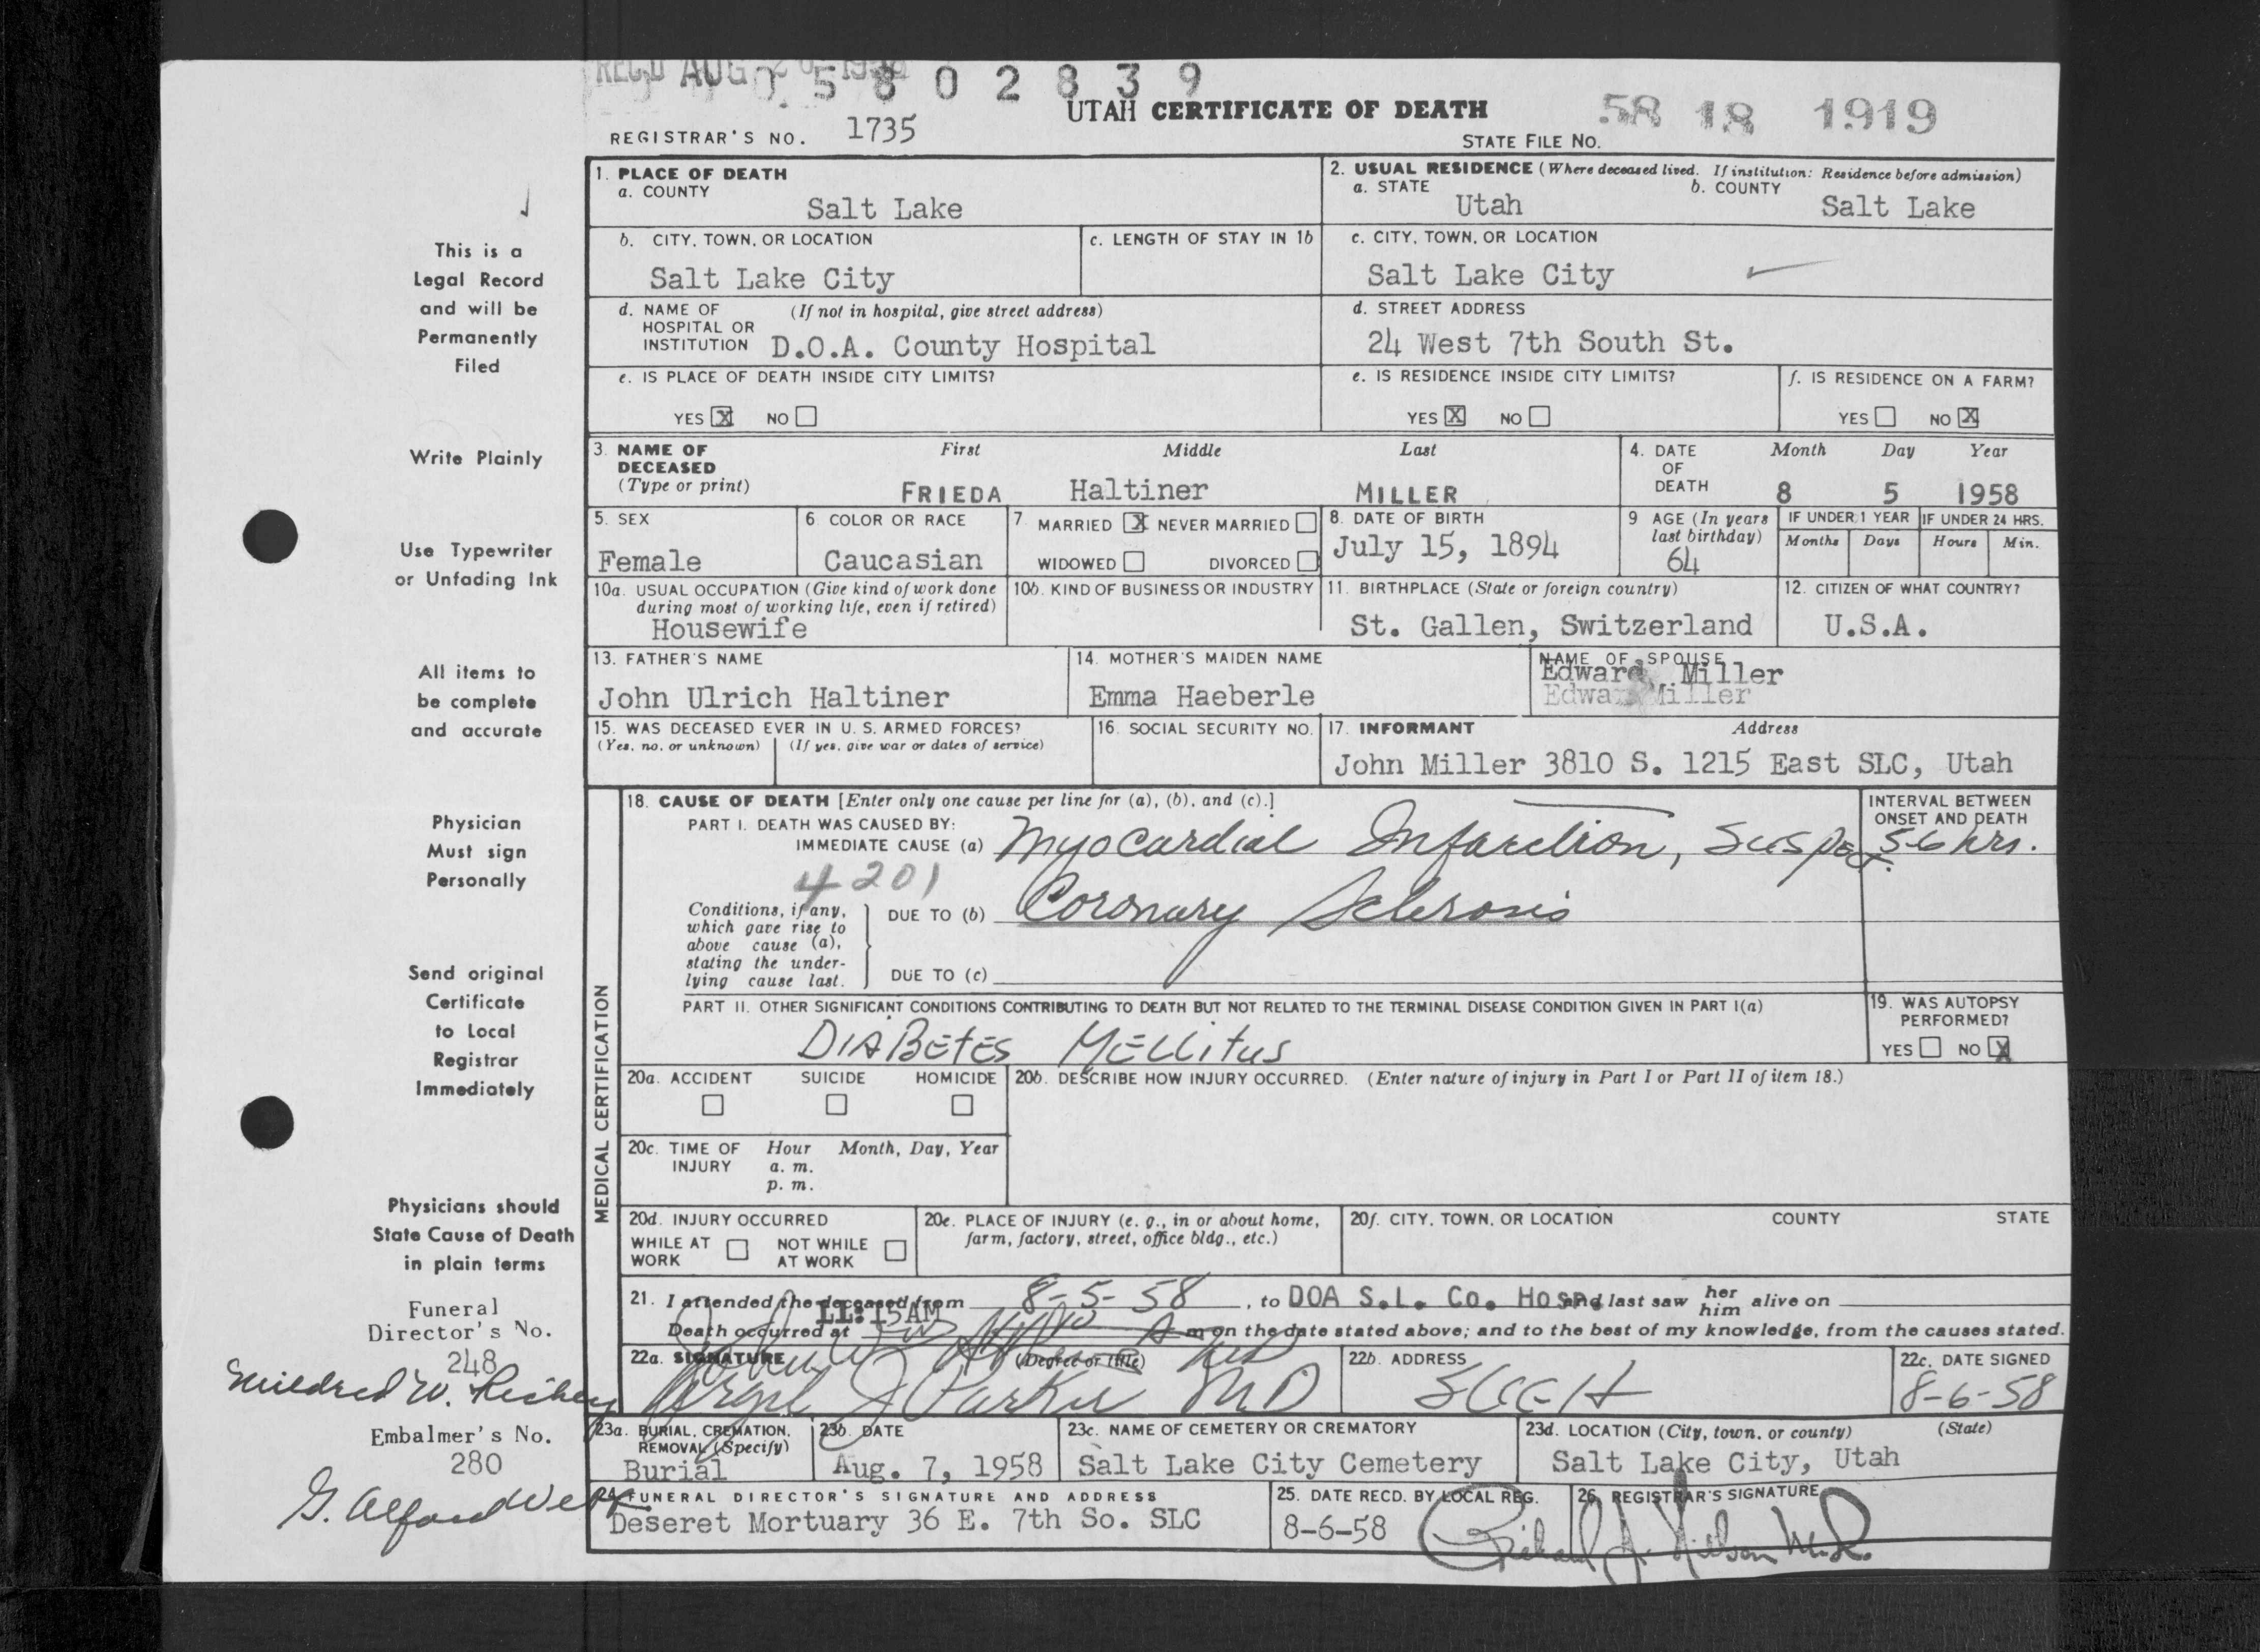 REC'D AUG 20 1958
0 5 8 0 2 8 3 9
UTAH CERTIFICATE OF DEATH
58 18 1919
REGISTRAR'S NO. 1735
STATE FILE NO.
1. PLACE OF DEATH
a. COUNTY
Salt Lake
2. USUAL RESIDENCE (Where deceased lived. If institution: Residence before admission)
a. STATE b. COUNTY
Utah Salt Lake
b. CITY, TOWN, OR LOCATION
Salt Lake City
c. LENGTH OF STAY IN 1b
c. CITY, TOWN, OR LOCATION
Salt Lake City
d. NAME OF (If not in hospital, give street address)
HOSPITAL OR
INSTITUTION D.O.A. County Hospital
d. STREET ADDRESS
24 West 7th South St.
e. IS PLACE OF DEATH INSIDE CITY LIMITS?
YES X NO
e. IS RESIDENCE INSIDE CITY LIMITS?
YES X NO
f. IS RESIDENCE ON A FARM?
YES NO X
3. NAME OF First Middle Last
DECEASED
(Type or print)
FRIEDA Haltiner MILLER
4. DATE Month Day Year
OF
DEATH 8 5 1958
5. SEX
Female
6 COLOR OR RACE
Caucasian
7 MARRIED X NEVER MARRIED
WIDOWED DIVORCED
8. DATE OF BIRTH
July 15, 1894
9 AGE (In years
last birthday)
64
IF UNDER 1 YEAR
Months Days
IF UNDER 24 HRS.
Hours Min.
10a. USUAL OCCUPATION (Give kind of work done
during most of working life, even if retired)
Housewife
10b. KIND OF BUSINESS OR INDUSTRY
11. BIRTHPLACE (State or foreign country)
St. Gallen, Switzerland
12. CITIZEN OF WHAT COUNTRY?
U.S.A.
13. FATHER'S NAME
John Ulrich Haltiner
14. MOTHER'S MAIDEN NAME
Emma Haeberle
NAME OF SPOUSE
Edward Miller
Miller
15. WAS DECEASED EVER IN U. S. ARMED FORCES?
(Yes, no, or unknown) (If yes, give war or dates of service)
16. SOCIAL SECURITY NO.
17. INFORMANT Address
John Miller 3810 S. 1215 East SLC, Utah
MEDICAL CERTIFICATION
18. CAUSE OF DEATH [Enter only one cause per line for (a), (b), and (c).]
PART I. DEATH WAS CAUSED BY:
IMMEDIATE CAUSE (a) Myocardial Infarction, Suspect.
INTERVAL BETWEEN
ONSET AND DEATH
56 hrs.
4201
Conditions, if any,
which gave rise to
above cause (a),
stating the under-
lying cause last.
DUE TO (b) Coronary Sclerosis
DUE TO (c)
PART II. OTHER SIGNIFICANT CONDITIONS CONTRIBUTING TO DEATH BUT NOT RELATED TO THE TERMINAL DISEASE CONDITION GIVEN IN PART I(a)
Diabetes Mellitus
19. WAS AUTOPSY
PERFORMED?
YES NO X
20a. ACCIDENT SUICIDE HOMICIDE
20b. DESCRIBE HOW INJURY OCCURRED. (Enter nature of injury in Part I or Part II of item 18.)
20c. TIME OF Hour Month, Day, Year
INJURY a. m.
p. m.
20d. INJURY OCCURRED
WHILE AT NOT WHILE
WORK AT WORK
20e. PLACE OF INJURY (e. g., in or about home,
farm, factory, street, office bldg., etc.)
20f. CITY, TOWN, OR LOCATION COUNTY STATE
21. I attended the deceased from 8-5-58, to DOA S.L. Co. Hosp. and last saw her him alive on
Death occurred at 11:15AM m on the date stated above; and to the best of my knowledge, from the causes stated.
22a. SIGNATURE (Degree or title)
Parker MD
22b. ADDRESS
SLCH
22c. DATE SIGNED
8-6-58
23a. BURIAL, CREMATION,
REMOVAL (Specify)
Burial
23b. DATE
Aug. 7, 1958
23c. NAME OF CEMETERY OR CREMATORY
Salt Lake City Cemetery
23d. LOCATION (City, town, or county) (State)
Salt Lake City, Utah
24. FUNERAL DIRECTOR'S SIGNATURE AND ADDRESS
Deseret Mortuary 36 E. 7th So. SLC
25. DATE RECD. BY LOCAL REG.
8-6-58
26. REGISTRAR'S SIGNATURE
Richard
This is a
Legal Record
and will be
Permanently
Filed
Write Plainly
Use Typewriter
or Unfading Ink
All items to
be complete
and accurate
Physician
Must sign
Personally
Send original
Certificate
to Local
Registrar
Immediately
Physicians should
State Cause of Death
in plain terms
Funeral
Director's No.
248
Mildred W.
Embalmer's No.
280
G. Alford